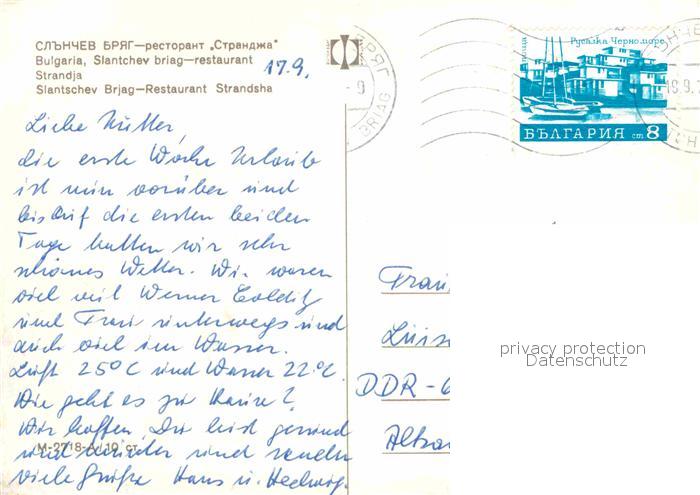 СЛЪНЧЕВ БРЯГ—ресторант „Странджа“
Bulgaria, Slantchev briag—restaurant
Strandja
Slantschev Brjag—Restaurant Strandsha
17.9.
Liebe Mutter,
die erste Woche Urlaub
ist nun vorüber und
bis auf die ersten beiden
Tage hatten wir sehr
schönes Wetter. Wir waren
viel mit Werner Colditz
und Frau unterwegs und
auch viel im Wasser.
Luft 25°C und Wasser 22°C.
Wie geht es zu Hause?
Wir hoffen, Du bist gesund
und munter und senden
viele Grüße Hans u. Hedwig.
М-2718-А/10 ст.
БРЯГ
BRIAG
Русалка Черноморе
поща
БЪЛГАРИЯ ст 8
Frau
Luise
DDR-
privacy protection
Datenschutz